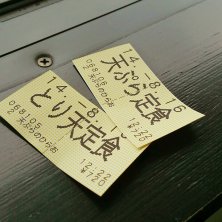 14.-8.16
天ぷら定食
068.05
2 天ぷらのひらお
12:22
¥720
14.-8.
とり天定食
068.05
2 天ぷらのひらお
12:22
¥720